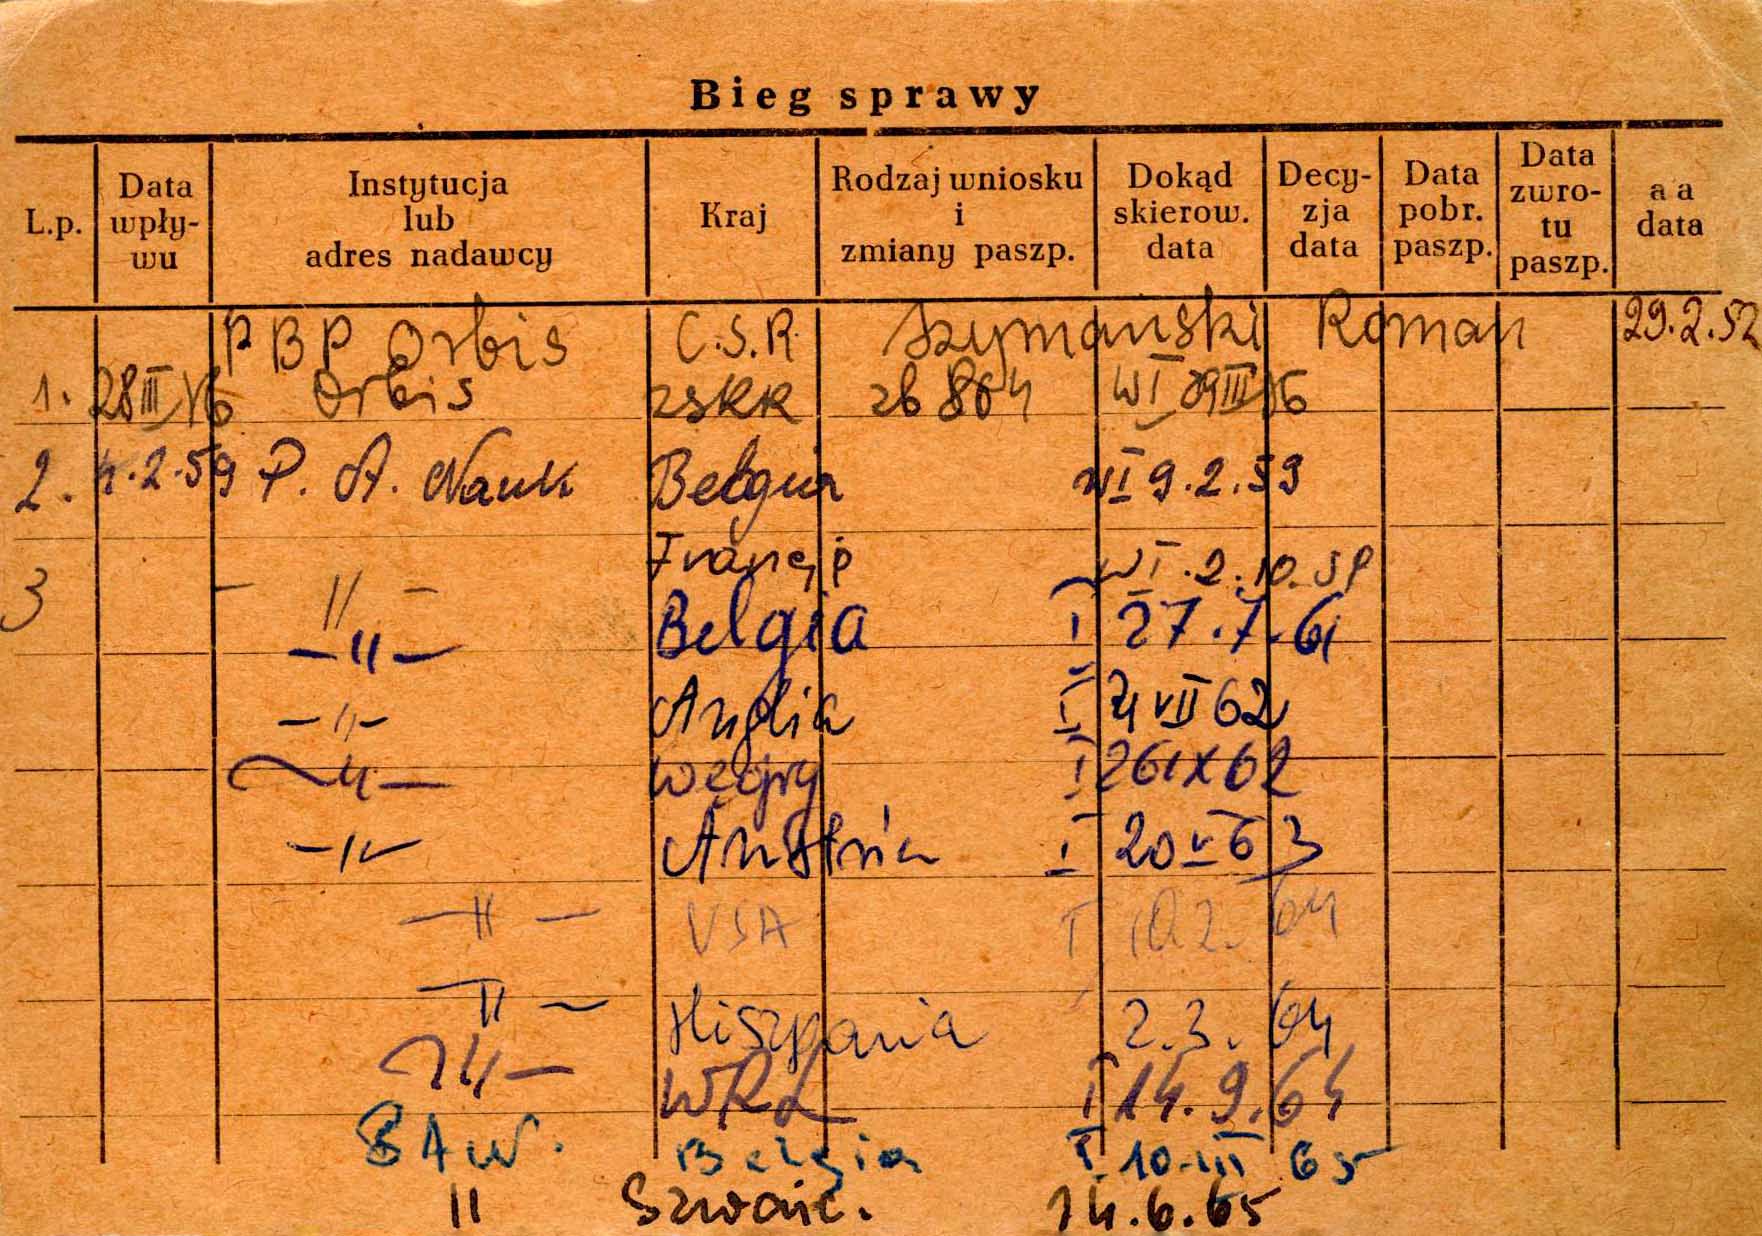 Bieg sprawy
L.p. Data wpły- wu Instytucja lub adres nadawcy Kraj Rodzaj wniosku i zmiany paszp. Dokąd skierow. data Decy- zja data Data pobr. paszp. Data zwro- tu paszp. a a data
P B P Orbis C.S.R. Szymański Roman 29.2.52
1. 28 III 56 Orbis zsRR zb 864 WI 29 III 56
2. 4.2.59 P. A. Nauk Belgia WI 9.2.59
Francja WI.2.10.59
3 — 〃 —
— 〃 — Belgia I 27.7.61
— 〃 — Anglia I 21 VII 62
— 〃 — Węgry I 26 IX 62
— 〃 — Austria I 20 V 63
— 〃 — USA I 10.2.64
— 〃 — Hiszpania 2.3.64
— 〃 — WRL I 14.9.64
Belgia I 10.III 65
〃 Szwajc. 14.6.65